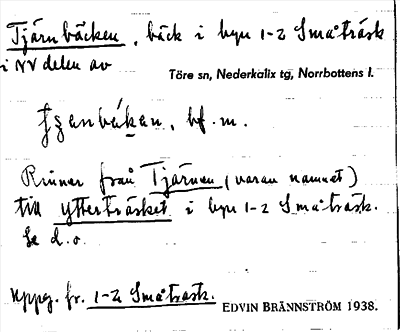 Tjärnbäcken, bäck i byn 1-2 Småträsk
i NV delen av
Töre sn, Nederkalix tg, Norrbottens l.
bf. m.
Rinner från Tjärnen (varav namnet)
till Ytterträsket i byn 1-2 Småträsk.
Se d.o.
Uppg. fr. 1-2 Småträsk.
EDVIN BRÄNNSTRÖM 1938.